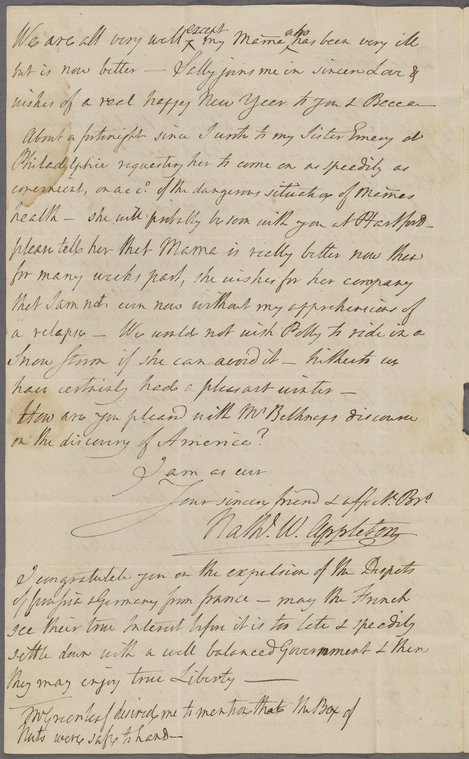 We are all very well except my Mama who has been very ill
but is now better — Sally joins me in sincere Love &
wishes of a real happy New Year to you & Becca —
About a fortnight since I wrote to my Sister Emery at
Philadelphia requesting her to come on as speedily as
convenient, on acco. of the dangerous situation of Mamas
health — she will probably be soon with you at Hartford —
please tell her that Mama is really better now than
for many weeks past, she wishes for her company
that I am not even now without my apprehensions of
a relapse — We would not wish Polly to ride in a
Snow Storm if she can avoid it — hitherto we
have certainly had a pleasant winter —
How are you pleasd with Mr Belknaps discourse
on the discovery of America?
I am as ever
Your sincere friend & affecte. Bro.
Nathl. W. Appleton
I congratulate you on the expulsion of the Despots
of prussia & Germany from france — may the French
see their true Interest before it is too late & speedily
settle down with a well balanced Government & then
they may enjoy true Liberty —
Mr Greenleaf desired me to mention that the Box of
Nuts were safe to hand —